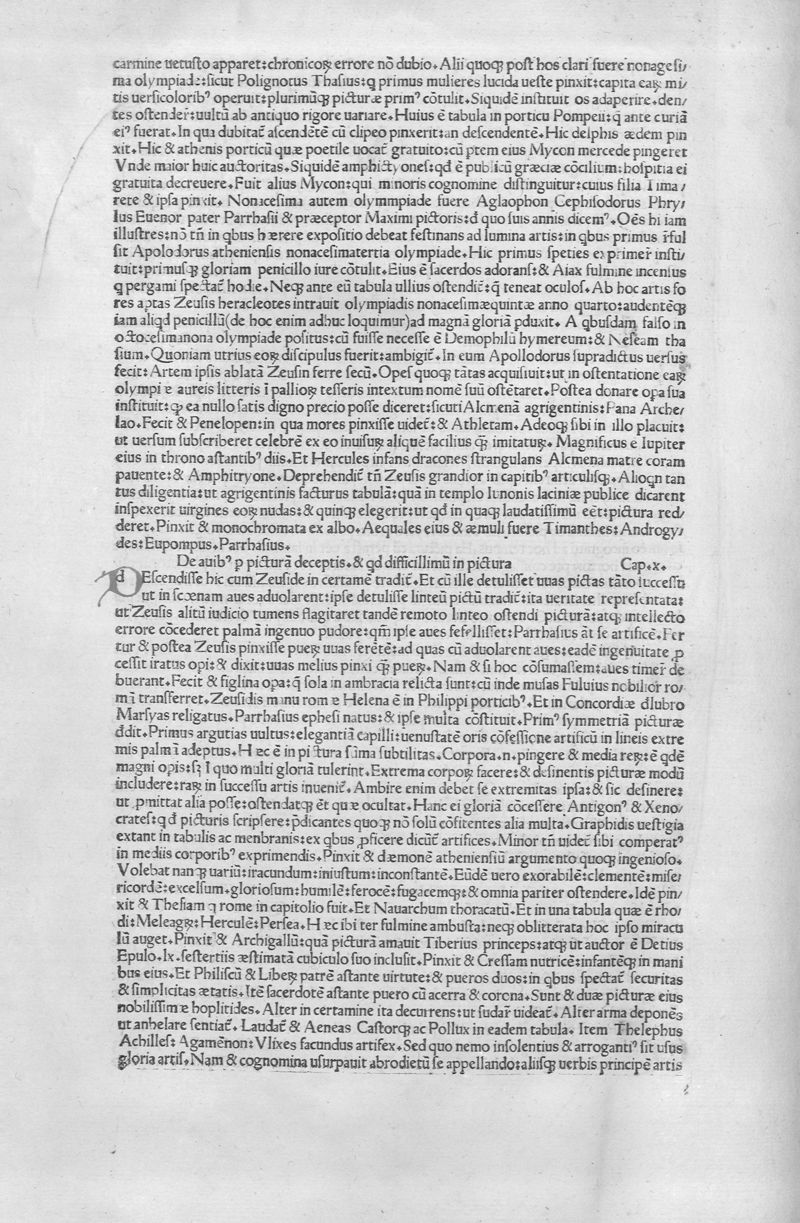 carmine uetusto apparet:chronicoꝝ errore nō dubio. Alii quoqꝫ post hos clari fuere nonagesi/
ma olympiade:sicut Polignotus Thasius:q primus mulieres lucida ueste pinxit:capita eaꝝ mi/
tis uersicolorib⁹ operuit:plurimūqꝫ picturæ prim⁹ cōtulit. Siquidē instituit os adaperire.den/
tes ostender̄:uultū ab antiquo rigore uariare. Huius ē tabula in porticu Pompeii:q̄ ante curiā
ei⁹ fuerat. In qua dubitat̄ ascendētē cū clipeo pinxerit:an descendentē. Hic delphis ædem pin
xit. Hic & athenis porticū quæ poetile uocat̄ gratuito:cū ptem eius Mycon mercede pingeret
Vnde maior huic auctoritas. Siquidē amphictyones:qd ē publicū græciæ cōcilium:hospitia ei
gratuita decreuere. Fuit alius Mycon:qui minoris cognomine distinguitur:cuius filia Tima/
rete & ipsa pinxit. Nonacesima autem olymmpiade fuere Aglaophon Cephisodorus Phry/
lus Euenor pater Parrhasii & præceptor Maximi pictoris:d quo suis annis dicem⁹. Oēs hi iam
illustres:nō tn̄ in qbus hærere expositio debeat festinans ad lumina artis:in qbus primus r̄ful
sit Apolodorus atheniensis nonacesimatertia olympiade. Hic primus speties exprimer̄ insti/
tuit:primusqꝫ gloriam penicillo iure cōtulit. Eius ē sacerdos adorans:& Aiax fulmine incenius
q pergami spectat̄ hodie. Neqꝫ ante eū tabula ullius ostendit̄:q̄ teneat oculos. Ab hoc artis fo
res aptas Zeusis heracleotes intrauit olympiadis nonacesimæquintæ anno quarto:audentēqꝫ
iam aliqd penicillū(de hoc enim adhuc loquimur)ad magnā gloriā pduxit. A qbusdam falso in
octocesimanona olympiade positus:cū fuisse necesse ē Demophilū hymereum:& Neseam tha
sium. Quoniam utrius eoꝝ discipulus fuerit:ambigit̄. In eum Apollodorus supradictus uersus
fecit: Artem ipsis ablatā Zeusin ferre secū. Opes quoqꝫ tātas acquisiuit:ut in ostentatione eaꝝ
olympiæ aureis litteris ī pallioꝝ tesseris intextum nomē suū ostētaret. Postea donare opa sua
instituit:ꝙ ea nullo satis digno precio posse diceret:sicuti Alcmenā agrigentinis:Pana Arche/
lao. Fecit & Penelopen:in qua mores pinxisse uidet̄:& Athletam. Adeoqꝫ sibi in illo placuit:
ut uersum subscriberet celebrē ex eo inuisuꝝ aliquē facilius q̄ꝫ imitatuꝝ. Magnificus e Iupiter
eius in throno astantib⁹ diis. Et Hercules infans dracones strangulans Alcmena matre coram
pauente:& Amphitryone. Deprehendit̄ tn̄ Zeusis grandior in capitib⁹ articulisqꝫ. Alioqn tan
tus diligentia:ut agrigentinis facturus tabulā:quā in templo Iunonis laciniæ publice dicarent
inspexerit uirgines eoꝝ nudas:& quinqꝫ elegerit:ut qd in quaqꝫ laudatissimū eēt:pictura red/
deret. Pinxit & monochromata ex albo. Aequales eius & æmuli fuere Timanthes:Androgy/
des:Eupompus.Parrhasius.
De auib⁹ p picturā deceptis.& qd difficillimū in pictura Cap.x.
dEscendisse hic cum Zeuside in certamē tradit̄. Et cū ille detulisset uuas pictas tāto successu
ut in scænam aues aduolarent:ipse detulisse linteū pictū tradit̄:ita ueritate repræsentata:
ut Zeusis alitū iudicio tumens flagitaret tandē remoto linteo ostendi picturā:atqꝫ intellecto
errore cōcederet palmā ingenuo pudore:qm̄ ipse aues fefellisset:Parrhasius āt se artificē. Fer
tur & postea Zeusis pinxisse pueꝝ uuas ferētē:ad quas cū aduolarent aues:eadē ingenuitate p
cessit iratus opi:& dixit:uuas melius pinxi q̄ꝫ pueꝝ. Nam & si hoc cōsumassem:aues timer̄ de
buerant. Fecit & figlina opa:q̄ sola in ambracia relicta sunt:cū inde musas Fuluius nobilior ro/
mā transferret. Zeusidis manu romæ Helena ē in Philippi porticib⁹. Et in Concordiæ dlubro
Marsyas religatus. Parrhasius ephesi natus:& ipse multa cōstituit. Prim⁹ symmetriā picturæ
ddit. Primus argutias uultus:elegantiā capilli:uenustatē oris cōfessione artificū in lineis extre
mis palmā adeptus. Hæc ē in pictura sūma subtilitas. Corpora.n.pingere & media reꝝ:ē qdē
magni opis:sꝫ ī quo multi gloriā tulerint. Extrema corpoꝝ facere:& desinentis picturæ modū
includere:raꝝ in successu artis inuenit̄. Ambire enim debet se extremitas ipsa:& sic desinere:
ut pmittat alia posse:ostendatqꝫ ēt quæ ocultat. Hanc ei gloriā cōcessere Antigon⁹ & Xeno/
crates:q d picturis scripsere:p̄dicantes quoqꝫ nō solū cōfitentes alia multa. Graphidis uestigia
extant in tabulis ac menbranis:ex qbus pficere dicūt artifices. Minor tn̄ uidet̄ sibi comperat⁹
in mediis corporib⁹ exprimendis. Pinxit & dæmonē atheniensiū argumento quoqꝫ ingenioso.
Volebat nanqꝫ uariū:iracundum:iniustum:inconstantē. Eūdē uero exorabilē:clementē:mise/
ricordē:excelsum.gloriosum:humilē:ferocē:fugacemqꝫ:& omnia pariter ostendere. Idē pin/
xit & Thesiam q rome in capitolio fuit. Et Nauarchum thoracatū. Et in una tabula quæ ē rho/
di:Meleagꝝ:Herculē:Persea. Hæc ibi ter fulmine ambusta:neqꝫ oblitterata hoc ipso miracu
lū auget. Pinxit & Archigallū:quā picturā amauit Tiberius princeps:atqꝫ ut auctor ē Detius
Epulo.lx.sestertiis æstimatā cubiculo suo inclusit. Pinxit & Cressam nutricē:infantēqꝫ in mani
bus eius. Et Philiscū & Libeꝝ patrē astante uirtute:& pueros duos:in qbus spectat̄ securitas
& simplicitas ætatis. Itē sacerdotē astante puero cū acerra & corona. Sunt & duæ picturæ eius
nobilissimæ hoplitides. Alter in certamine ita decurrens:ut sudar̄ uideat̄. Alter arma deponēs
ut anhelare sentiat̄. Laudat̄ & Aeneas Castorqꝫ ac Pollux in eadem tabula. Item Thelephus
Achilles: Agamēnon:Vlixes facundus artifex. Sed quo nemo insolentius & arroganti⁹ sit usus
gloria artis. Nam & cognomina usurpauit abrodietū se appellando:aliisqꝫ uerbis principē artis